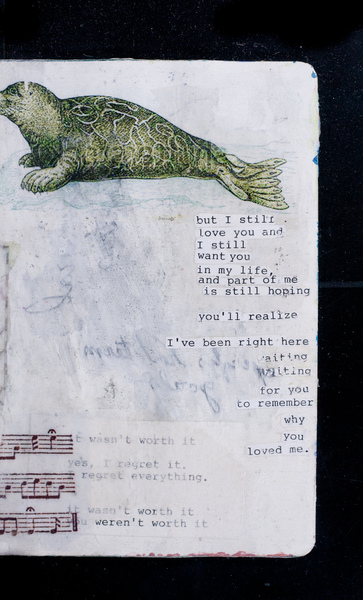 but I still
love you and
I still
want you
in my life,
and part of me
is still hoping
you'll realize
I've been right here
waiting
waiting
for you
to remember
why
you
loved me.
t wasn't worth it
yes, I regret it.
regret everything.
wasn't worth it
u weren't worth it